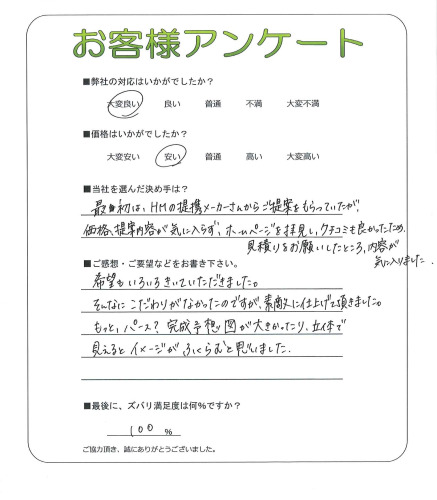 お客様アンケート
■弊社の対応はいかがでしたか?
大変良い 良い 普通 不満 大変不満
■価格はいかがでしたか?
大変安い 安い 普通 高い 大変高い
■当社を選んだ決め手は?
最初は、HMの提携メーカーさんからご提案をもらっていたが、
価格、提案内容が気に入らず、ホームページを拝見し、クチコミも良かったため、
見積りをお願いしたところ、内容が
気に入りました。
■ご感想・ご要望などをお書き下さい。
希望もいろいろきいていただきました。
そんなにこだわりがなかったのですが、素敵に仕上げて頂きました。
もっと、パース?完成予想図が大きかったり、立体で
見えるとイメージがふくらむと思いました。
■最後に、ズバリ満足度は何%ですか?
100 %
ご協力頂き、誠にありがとうございました。